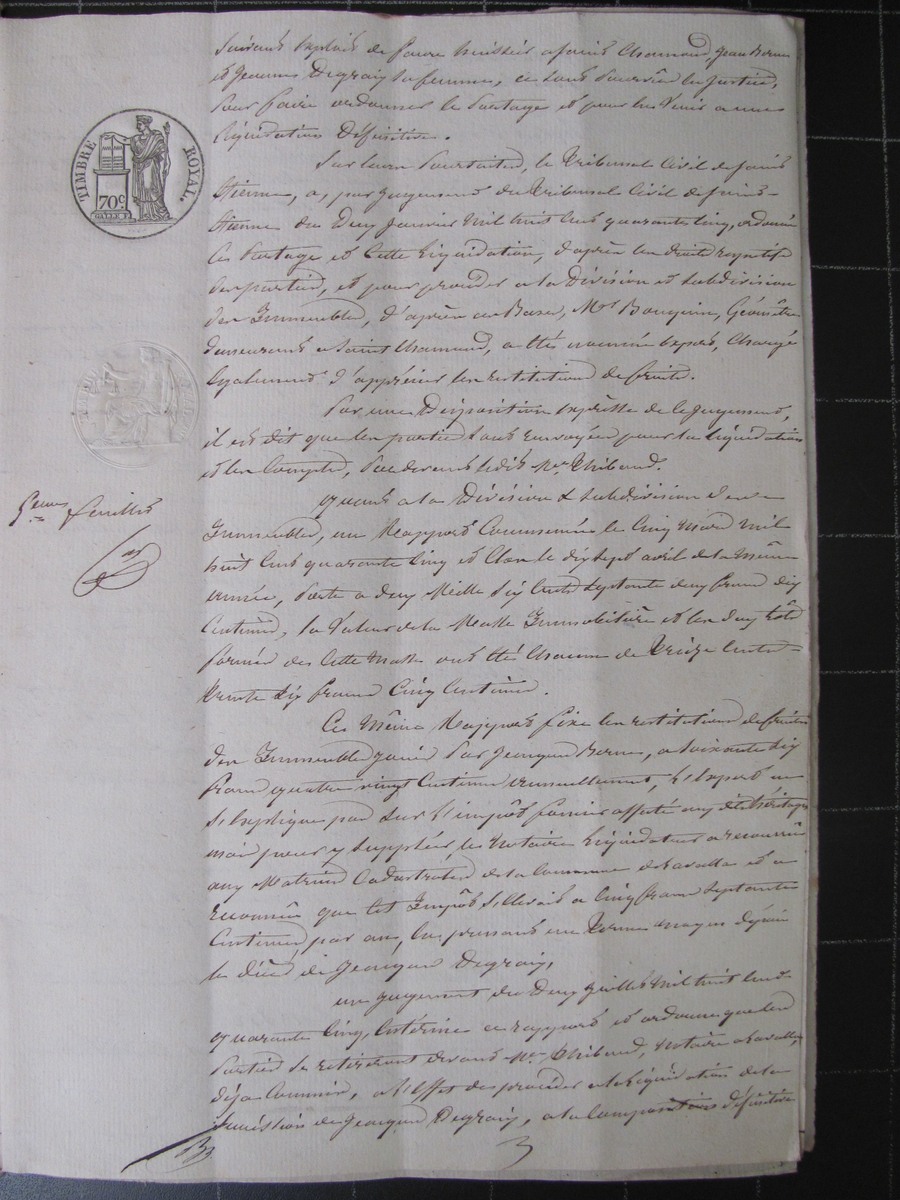 suivant exploit de Favre huissier à Saint Chamond, Jean Berne
et Jeanne Degraix sa femme, se sont pourvus en justice,
pour faire ordonner le partage et pour en venir à une
liquidation définitive.
Sur leurs poursuites, le Tribunal Civil de Saint
Etienne, a, par jugement du Tribunal Civil de Saint-
Etienne du deux Janvier mil huit cent quarante cinq, ordonné
ce partage et cette liquidation, d'après les droits respectifs
des parties, et pour procéder à la Division et subdivision
des Immeubles, d'après ces Bases, Mr Géomètre
demeurant à Saint Chamond, a été nommé expert, chargé
également d'apprécier les restitutions de fruits.
Par une Disposition expresse de ce jugement,
il est dit que les parties sont renvoyées pour la liquidation
et les comptes, par devant ledit Me Thibaud.
Quant à la Division & subdivision des
Immeubles, un Rapport commencé le cinq Mars mil
huit cent quarante cinq et clos le dix sept avril de la même
année, porte à deux mille six cents septante deux francs dix
centimes, la valeur de la Masse Immobilière et les deux lots
formés de cette Masse ont été chacun de treize cents
trente six francs cinq centimes.
Ce même Rapport fixe les restitutions de fruits
des Immeubles jouis par Jacques Berne, à soixante dix
francs quatre vingt centimes annuellement, l'expert ne
s'explique pas sur l'impôt foncier affecté aux dits héritages
mais pour y suppléer, le Notaire liquidateur a recouru
aux Matrices Cadastrales de la commune de Lavalla et a
reconnu que cet Impôt s'élevait à cinq francs septante
centimes par an, en prenant un terme moyen depuis
le décès de Jacques Degraix.
Un jugement du deux Juillet mil huit cent
quarante cinq, entérine ce rapport et ordonne que les
parties se retireront devant Me Thibaud, Notaire à Lavalla,
déjà commis, à l'effet de procéder à la liquidation de la
succession de Jacques Degraix, à la composition définitive
TIMBRE ROYAL.
70c.
feuillet
3